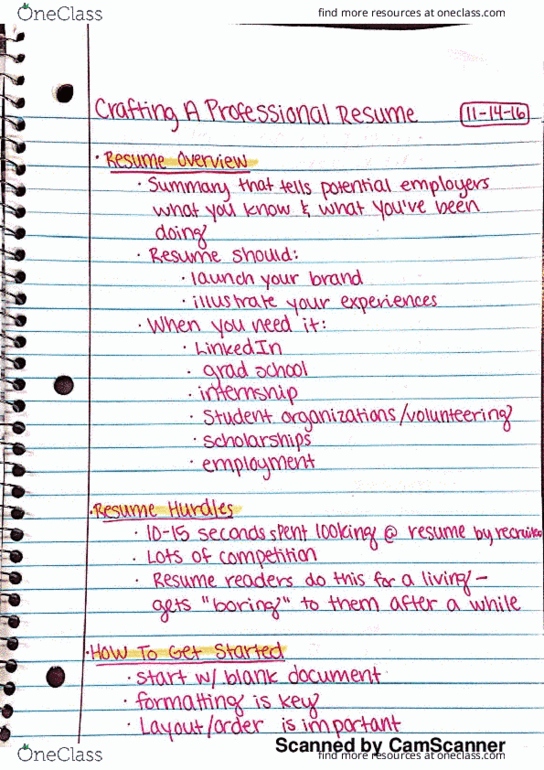 OneClass
find more resources at oneclass.com
Crafting A Professional Resume
11-14-16
· Resume Overview
· Summary that tells potential employers
what you know & what you've been
doing
· Resume should:
· launch your brand
· illustrate your experiences
· When you need it:
· LinkedIn
· grad school
· internship
· Student organizations/volunteering
· scholarships
· employment
· Resume Hurdles
· 10-15 seconds spent looking @ resume by recruiter
· Lots of competition
· Resume readers do this for a living-
gets "boring" to them after a while
· How To Get Started
· start w/ blank document
· formatting is key
· Layout/order is important
Scanned by CamScanner
OneClass
find more resources at oneclass.com